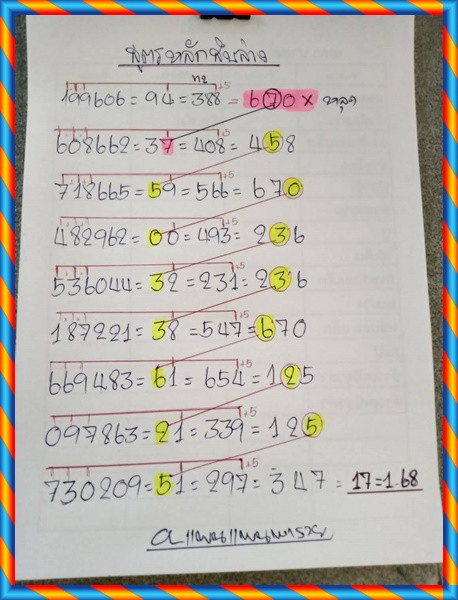 สูตรหลักสิบล่าง
หน
199606 = 94 = 388 +5 = 670 × หลุด
608662 = 37 = 408 +5 = 458
718665 = 59 = 566 +5 = 670
482962 = 00 = 493 +5 = 236
536044 = 32 = 231 +5 = 236
187221 = 38 = 547 +5 = 670
669483 = 61 = 654 +5 = 125
097863 = 21 = 339 +5 = 125
730209 = 51 = 297 +5 = 347 = 17=1-68